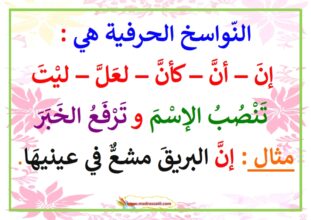 النّواسخ الحرفية هي :
إنَ – أنَّ – كأنَّ – لعَلَّ – ليْتَ
تَنْصُبُ الإسْمَ و تَرْفَعُ الخَبَرَ
مثال : إنَّ البريقَ مشعٌّ في عينيهَا.
www.madrassatii.com